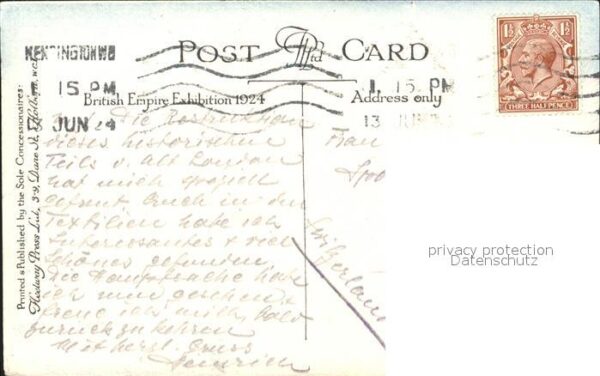 KENSINGTON W8
1 15 PM
13 JUN 24
POST CARD
Ltd
British Empire Exhibition 1924
Address only
1 15 PM
13 JUN
THREE HALF PENCE
1½
1½
Printed & Published by the Sole Concessionaires:
Fleetway Press Ltd., 3-9, Dane St., Holborn, W.C.1
Die Rekonstruktion
dieses historischen
Teils v. Alt London
hat mich speziell
gefreut. Auch in den
Textilien habe ich
Interessantes & viel
Schönes gefunden
Die Hauptsache habe
ich nun gesehen &
freue ich mich, bald
zurückzukehren
Mit herzl. Gruss
Heinrich
Frau
Switzerland
privacy protection
Datenschutz